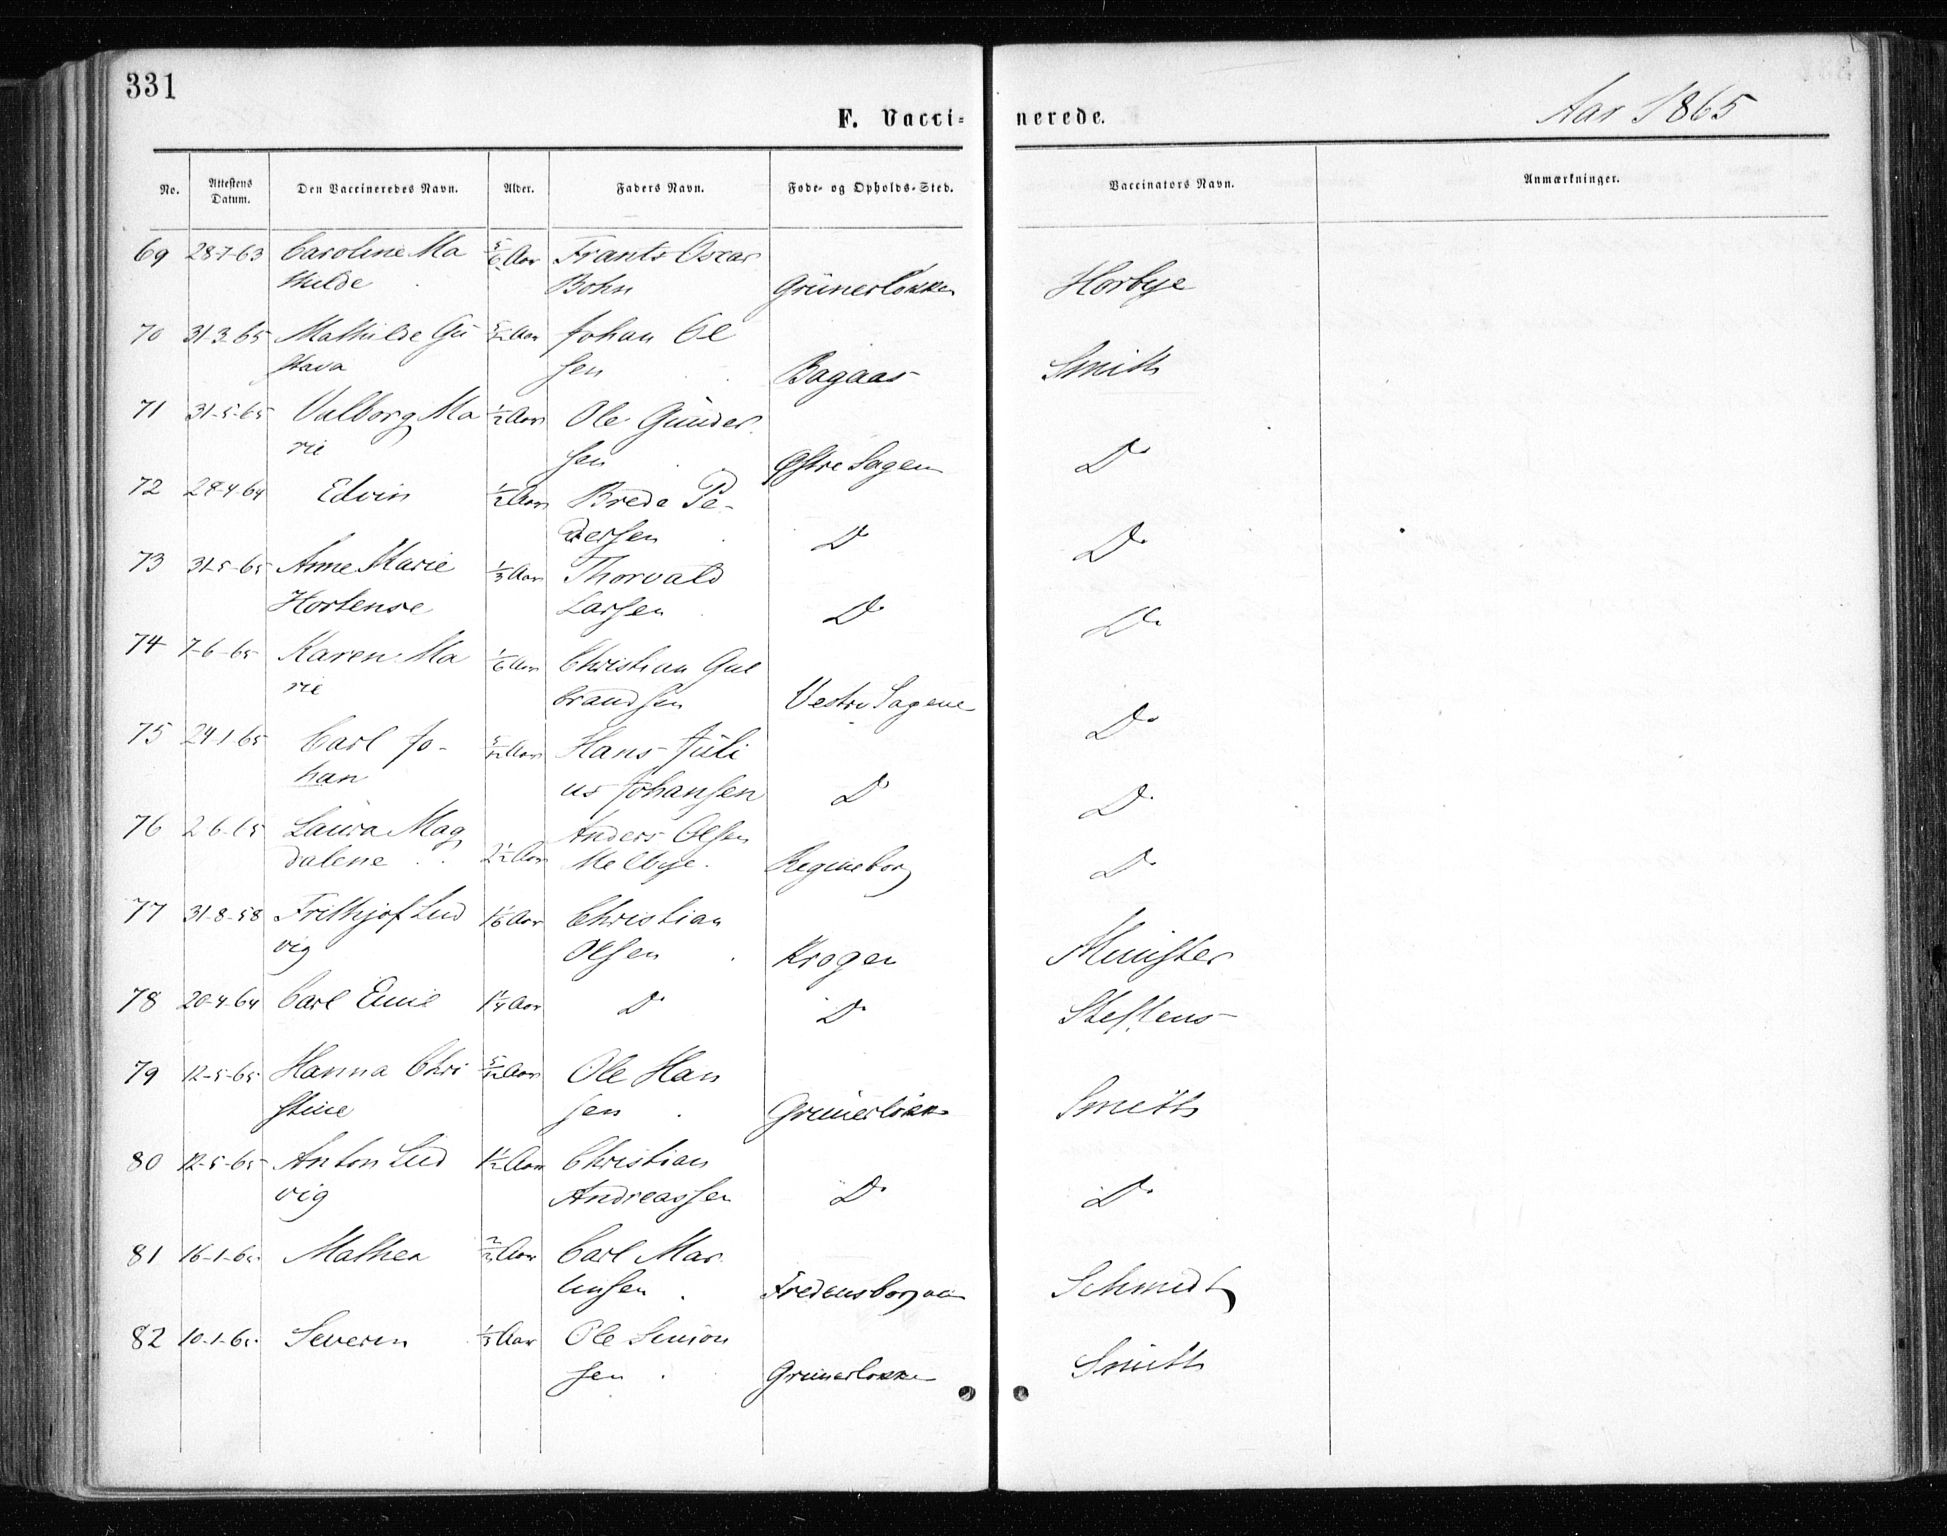 331
F. Vacci- nerede. Aar 1865
No. Attestens Datum. Den Vaccineredes Navn. Alder. Faders Navn. Føde- og Opholds-Sted. Vaccinators Navn. Anmærkninger.
69 28-7-63 Caroline Ma 5/6 Aar Frants Oscar
thilde Bohn Grünerløkken Horbye
70 31-3-65 Mathilde Gu Aar Johan Ol
stava sen Bagaas Smith
71 31-5-65 Valborg Ma 1/2 Aar Ole Gunder
rie sen Østre Sagen D
72 28-4-64 Edvin 1/2 Aar Brede Pe-
dersen D D
73 31-5-65 Anne Marie 1/3 Aar Thorvald
Hortense Larsen D D
74 7-6-65 Karen Ma 1/6 Aar Christian Gul
rie brandsen Vestre Sagene D
75 24-1-65 Carl Jo- 5/12 Aar Hans Juli
han us Johansen D D
76 2-6-65 Laura Mag Anders Olsen
dalene 2 1/2 Aar Melbye. Regineborg D
77 31-8-58 Frithjof Lud 1 1/6 Aar Christian
vig Olsen Krogen Münster
78 20-4-64 Carl Emil 1 1/4 Aar D D Steffens
79 12-5-65 Hanna Chri 5/12 Aar Ole Han
stine sen Grünerløkk Smith
80 12-5-65 Anton Lud 1 1/2 Aar Christian
vig Andreassen D D
81 16-1-65 Mathea 2/3 Aar Carl Mar
tinsen Fredensborgvei Schmidt
82 10-1-65 Severin 1/3 Aar Ole Simon
sen Grünerløkke Smith